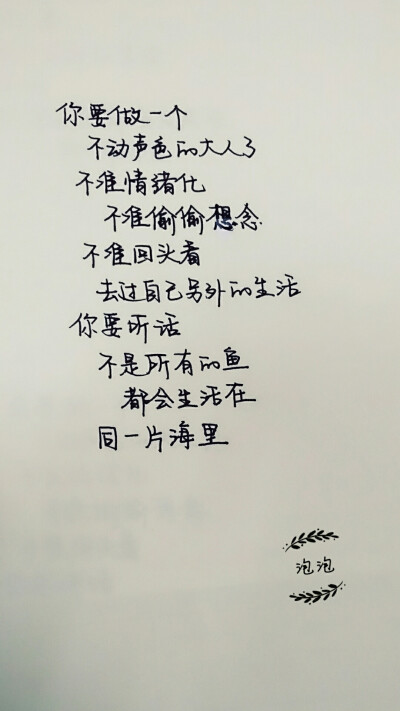 你要做一个
不动声色的大人了
不准情绪化
不准偷偷想念
不准回头看
去过自己另外的生活
你要听话
不是所有的鱼
都会生活在
同一片海里
泡泡